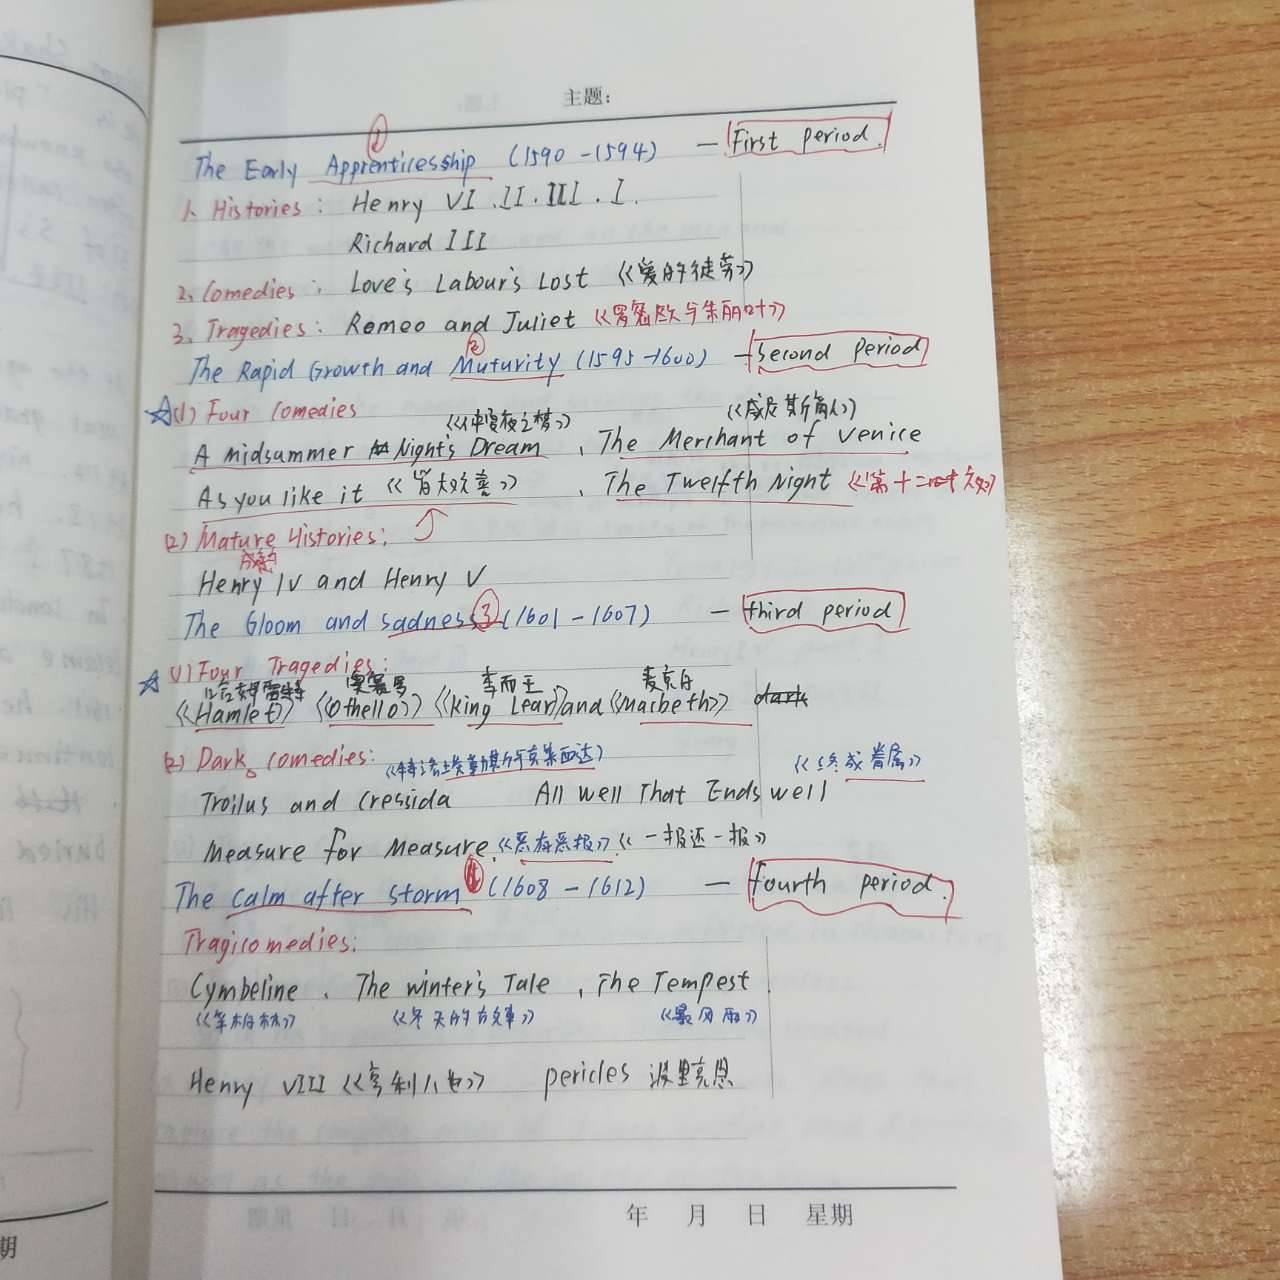 主题：
①
The Early Apprenticesship (1590-1594) — First period.
1、Histories: Henry VI .II.III.I.
Richard III
2、Comedies: Love's Labour's Lost 《爱的徒劳》
3、Tragedies: Romeo and Juliet 《罗密欧与朱丽叶》
②
The Rapid Growth and Muturity (1595-1600) — Second period
☆(1) Four Comedies
《仲夏夜之梦》 《威尼斯商人》
A midsummer Night's Dream 、The Merchant of Venice
As you like it 《皆大欢喜》 、The Twelfth Night 《第十二夜》
(2) Mature Histories:
成熟的
Henry IV and Henry V
The Gloom and sadness ③ (1601-1607) — third period
☆(1) Four Tragedies:
哈姆雷特 奥赛罗 李而王 麦克白
《Hamlet》《Othello》《King Lear》and《Macbeth》 dark
(2) Dark comedies: 《特洛埃勒斯与克莱西达》 《终成眷属》
Troilus and Cressida All well That Ends well
Measure for Measure.《恶有恶报》《一报还一报》
The Calm after storm ④ (1608-1612) — fourth period.
Tragicomedies:
Cymbeline 、The winter's Tale 、The Tempest
《辛柏林》 《冬天的故事》 《暴风雨》
Henry VIII 《亨利八世》 pericles 波里克思
年 月 日 星期
期